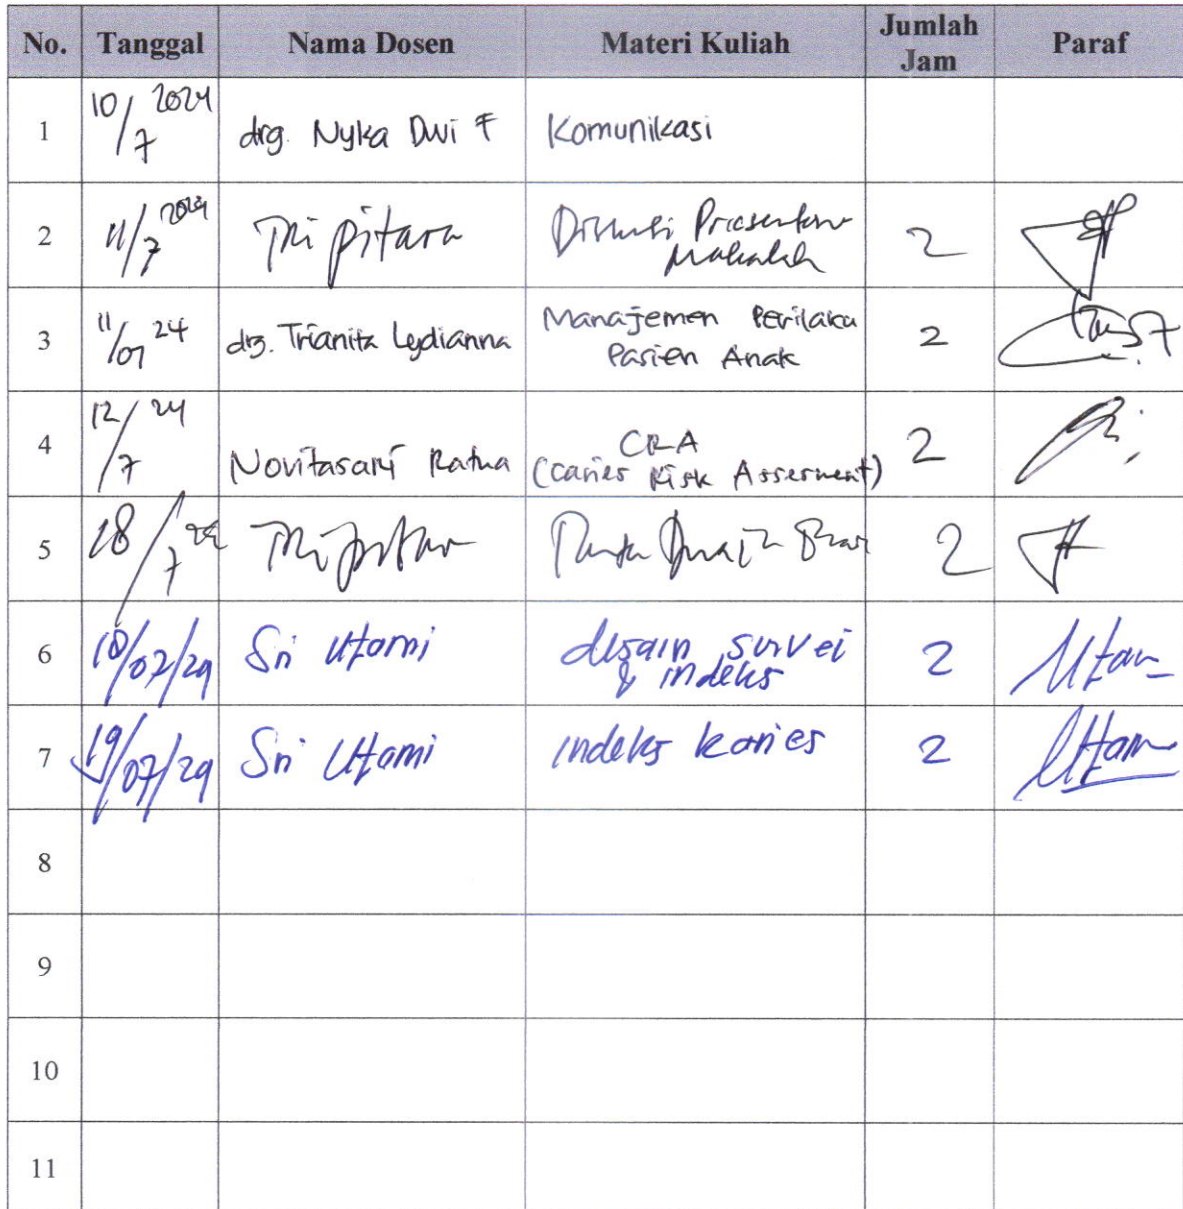 No. Tanggal Nama Dosen Materi Kuliah Jumlah Jam Paraf
1 10/7 2024 drg. Nyka Dwi F Komunikasi
2 11/7 2024 Tri pitara Diskusi Presentasi Makalah 2
3 11/07 24 drg. Trianita Lydianna Manajemen Perilaku Pasien Anak 2
4 12/7 24 Novitasari Ratna CRA (Caries Risk Assesment) 2
5 18/7 24 Tri pitara 2
6 18/07/24 Sri Utami desain survei & indeks 2 Utam
7 19/07/24 Sri Utami indeks karies 2 Utam
8
9
10
11